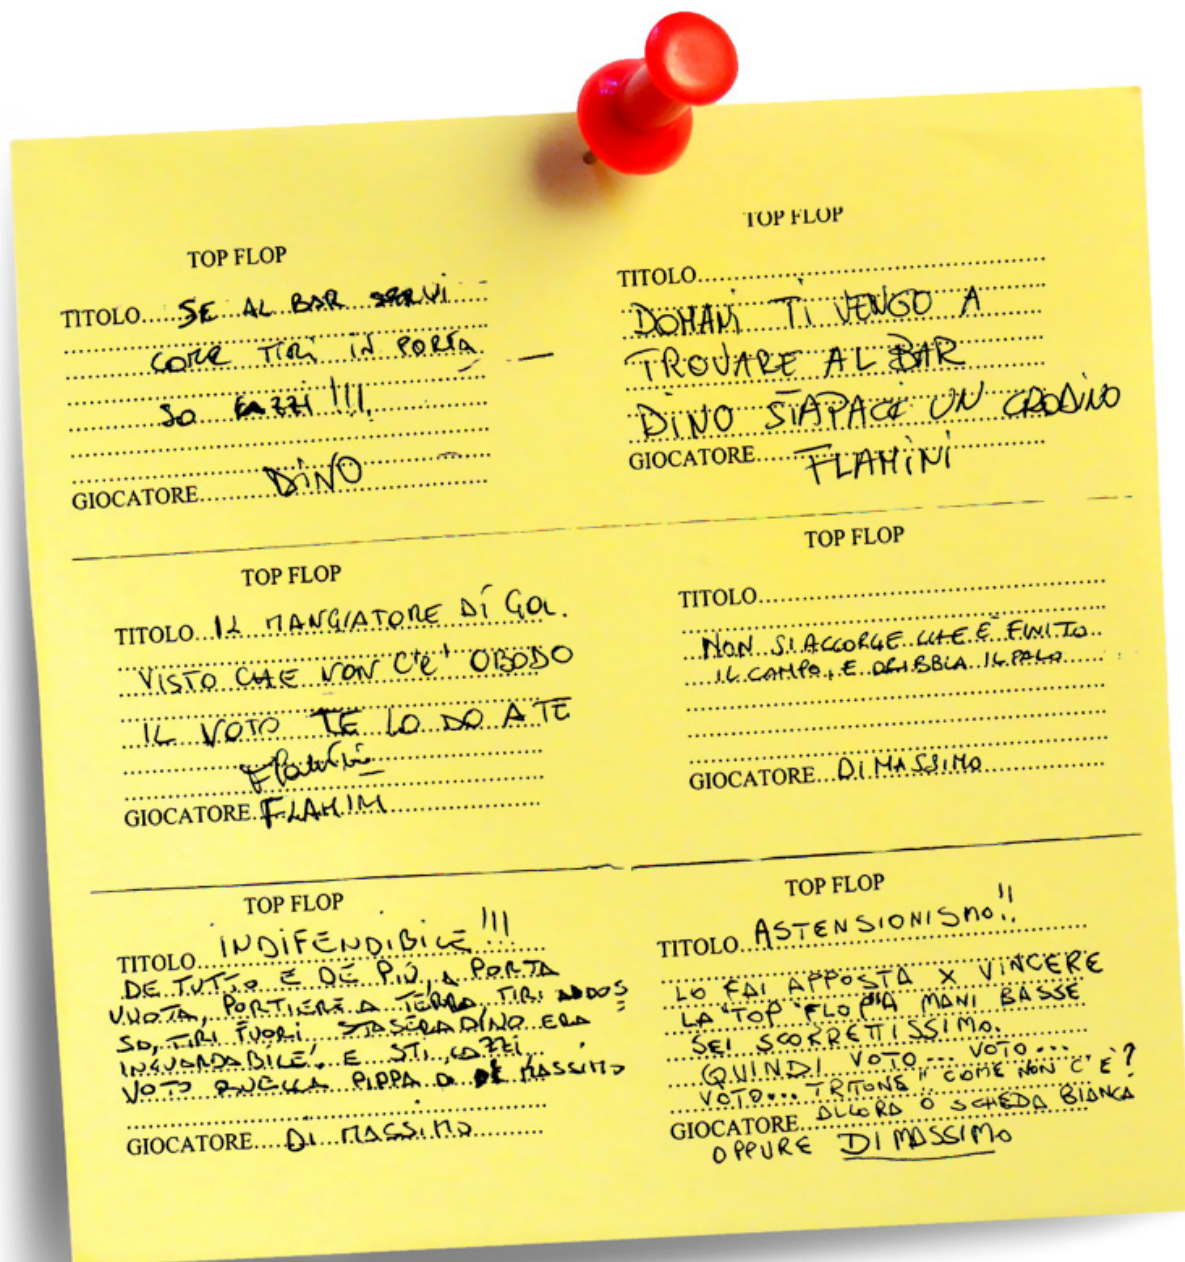 TOP FLOP
TITOLO.... SE AL BAR SERVI
COME TIRI IN PORTA
SO CAZZI!!!
GIOCATORE.... DINO
TOP FLOP
TITOLO....
DOMANI TI VENGO A
TROVARE AL BAR
DINO STAPACE UN CRODINO
GIOCATORE.... FLAMINI
TOP FLOP
TITOLO... IL MANGIATORE DI GOL.
VISTO CHE NON C'E' OBODO
IL VOTO TE LO DO A TE
GIOCATORE. FLAMINI
TOP FLOP
TITOLO....
NON SI ACCORGE CHE E' FINITO
IL CAMPO, E DRIBBLA IL PALO
GIOCATORE... DI MASSIMO
TOP FLOP
TITOLO... INDIFENDIBILE!!!
DE TUTTO E DE PIÙ, A PORTA
VUOTA, PORTIERE A TERRA, TIRI ADDOS
SO, TIRI FUORI. STASERA DINO ERA
INGUARDABILE! E STI CAZZI
VOTO QUELLA PIPPA D DE MASSIMO
GIOCATORE.... DI MASSIMO
TOP FLOP
TITOLO... ASTENSIONISMO!!
LO FAI APPOSTA X VINCERE
LA "TOP FLOP" A MANI BASSE
SEI SCORRETTISSIMO.
QUINDI VOTO... VOTO...
VOTO... TRITONE " COME NON C'E'?
GIOCATORE ALLORA O SCHEDA BIANCA
OPPURE DI MASSIMO